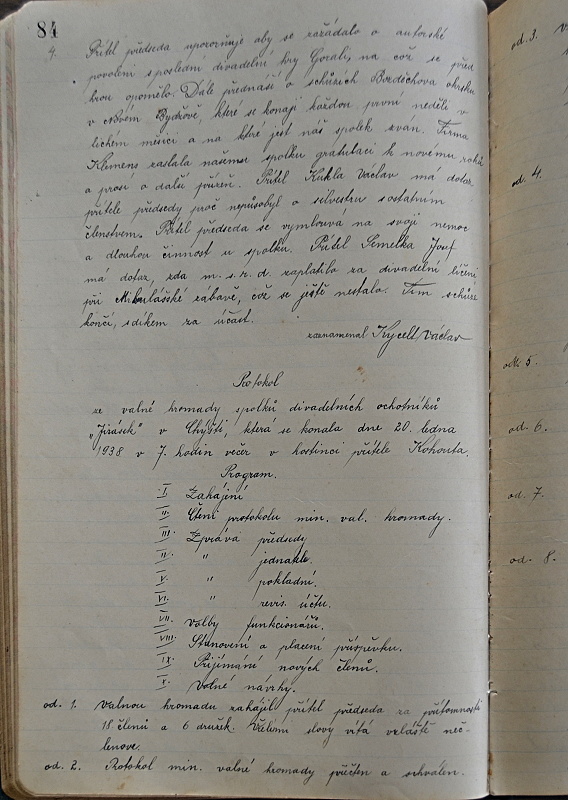 84
4. Přítel předseda upozorňuje aby se zažádalo o autorské
povolení s poslední divadelní hry Gorali, na což se před
hrou opomělo. Dále přednáší o schůzích Bozděchova okrsku
v Novém Bydžově, které se konají každou první neděli v
lichém měsíci a na které jest náš spolek zván. Firma
Klemens zaslala našemu spolku gratulaci k novému roku
a prosí o další přízeň. Přítel Kukla Václav má dotaz
přítele předsedy proč nepůsobyl o silvestru s ostatním
členstvem. Přítel předseda se vymlouvá na svojí nemoc
a dlouhou činnost u spolku. Přítel Semelka Josef
má dotaz, zda m. s. r. d. zaplatilo za divadelní líčení
při Mikulášské zábavě, což se ještě nestalo. Tím schůze
končí, s díkem za účast.
zaznamenal Kycelt Václav
Protokol
ze valné hromady spolků divadelních ochotníků
"Jirásek" v Chýšti, která se konala dne 20. ledna
1938 v 7. hodin večer v hostinci přítele Kohouta.
Program.
I Zahájení
II. Čtení protokolu min. val. hromady.
III. Zpráva předsedy
IV. " jednatele.
V. " pokladní.
VI. " revis. účtu.
VII. Volby funkcionářů.
VIII. Stanovení a placení příspěvku.
IX. Přijímání nových členů.
X. Volné návrhy.
od. 1. Valnou hromadu zahájil přítel předseda za přítomnosti
18 členů a 6 družek. Vřelými slovy vítá vzláště neč-
lenove.
od. 2. Protokol min. valné hromady přečten a schválen.
od. 3.
od. 4.
od. 5.
od. 6.
od. 7.
od. 8.